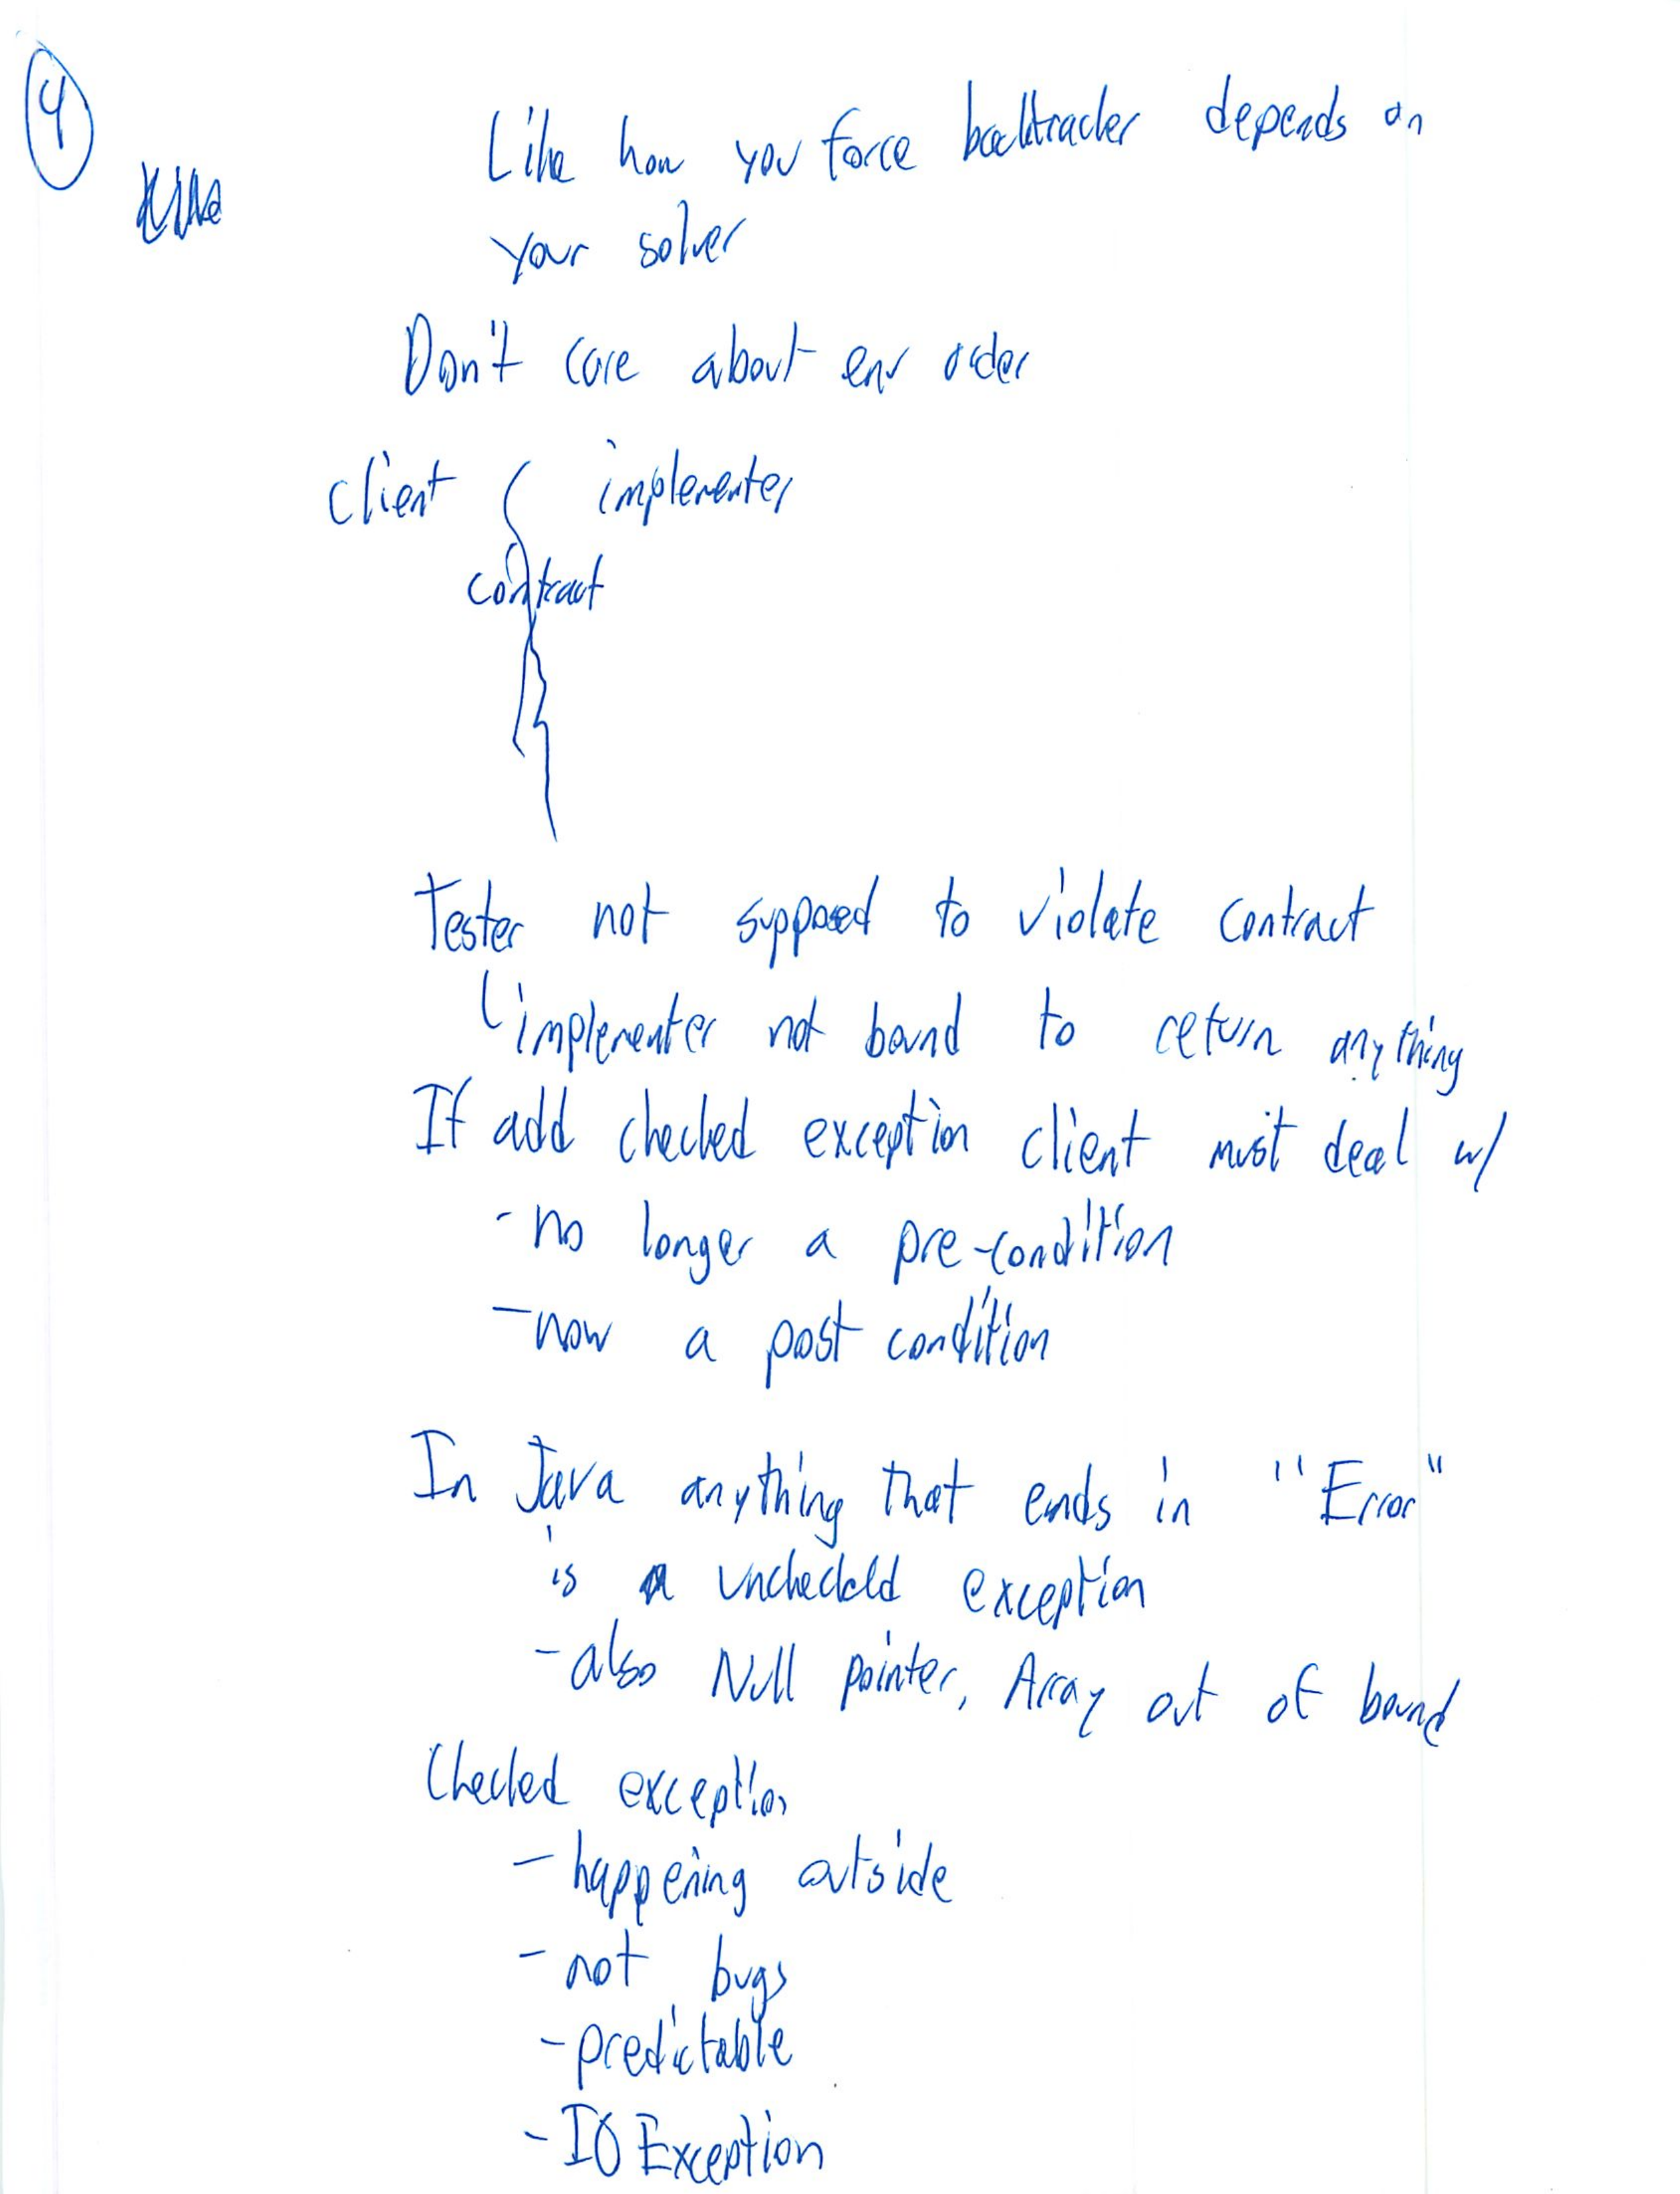 4
Like how you force backtracker depends on
your solver
Don't care about env order
client implementer
contract
Tester not supposed to violate contract
implementer not bound to return anything
If add checked exception client must deal w/
- no longer a pre-condition
- now a post condition
In Java anything that ends in "Error"
is a unchecked exception
- also Null pointer, Array out of bound
Checked exception
- happening outside
- not bugs
- predictable
- IO Exception